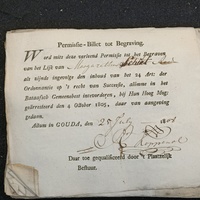 Permissie-Billet tot Begraving.
Word mits deze verleend Permissie tot het Begraven
van het Lijk van
als zijnde ingevolge den inhoud van het 24 Art: der
Ordonnantie op 't recht van Successie, alomme in het
Bataafsch Gemeenebest intevoorderen, bij Hun Hoog Mog:
gearresteerd den 4 October 1805, daar van aangeving
gedaan.
Actum in GOUDA, den 25 July
Daar toe gequalificeerd door 't Plaatzelijk
Bestuur.